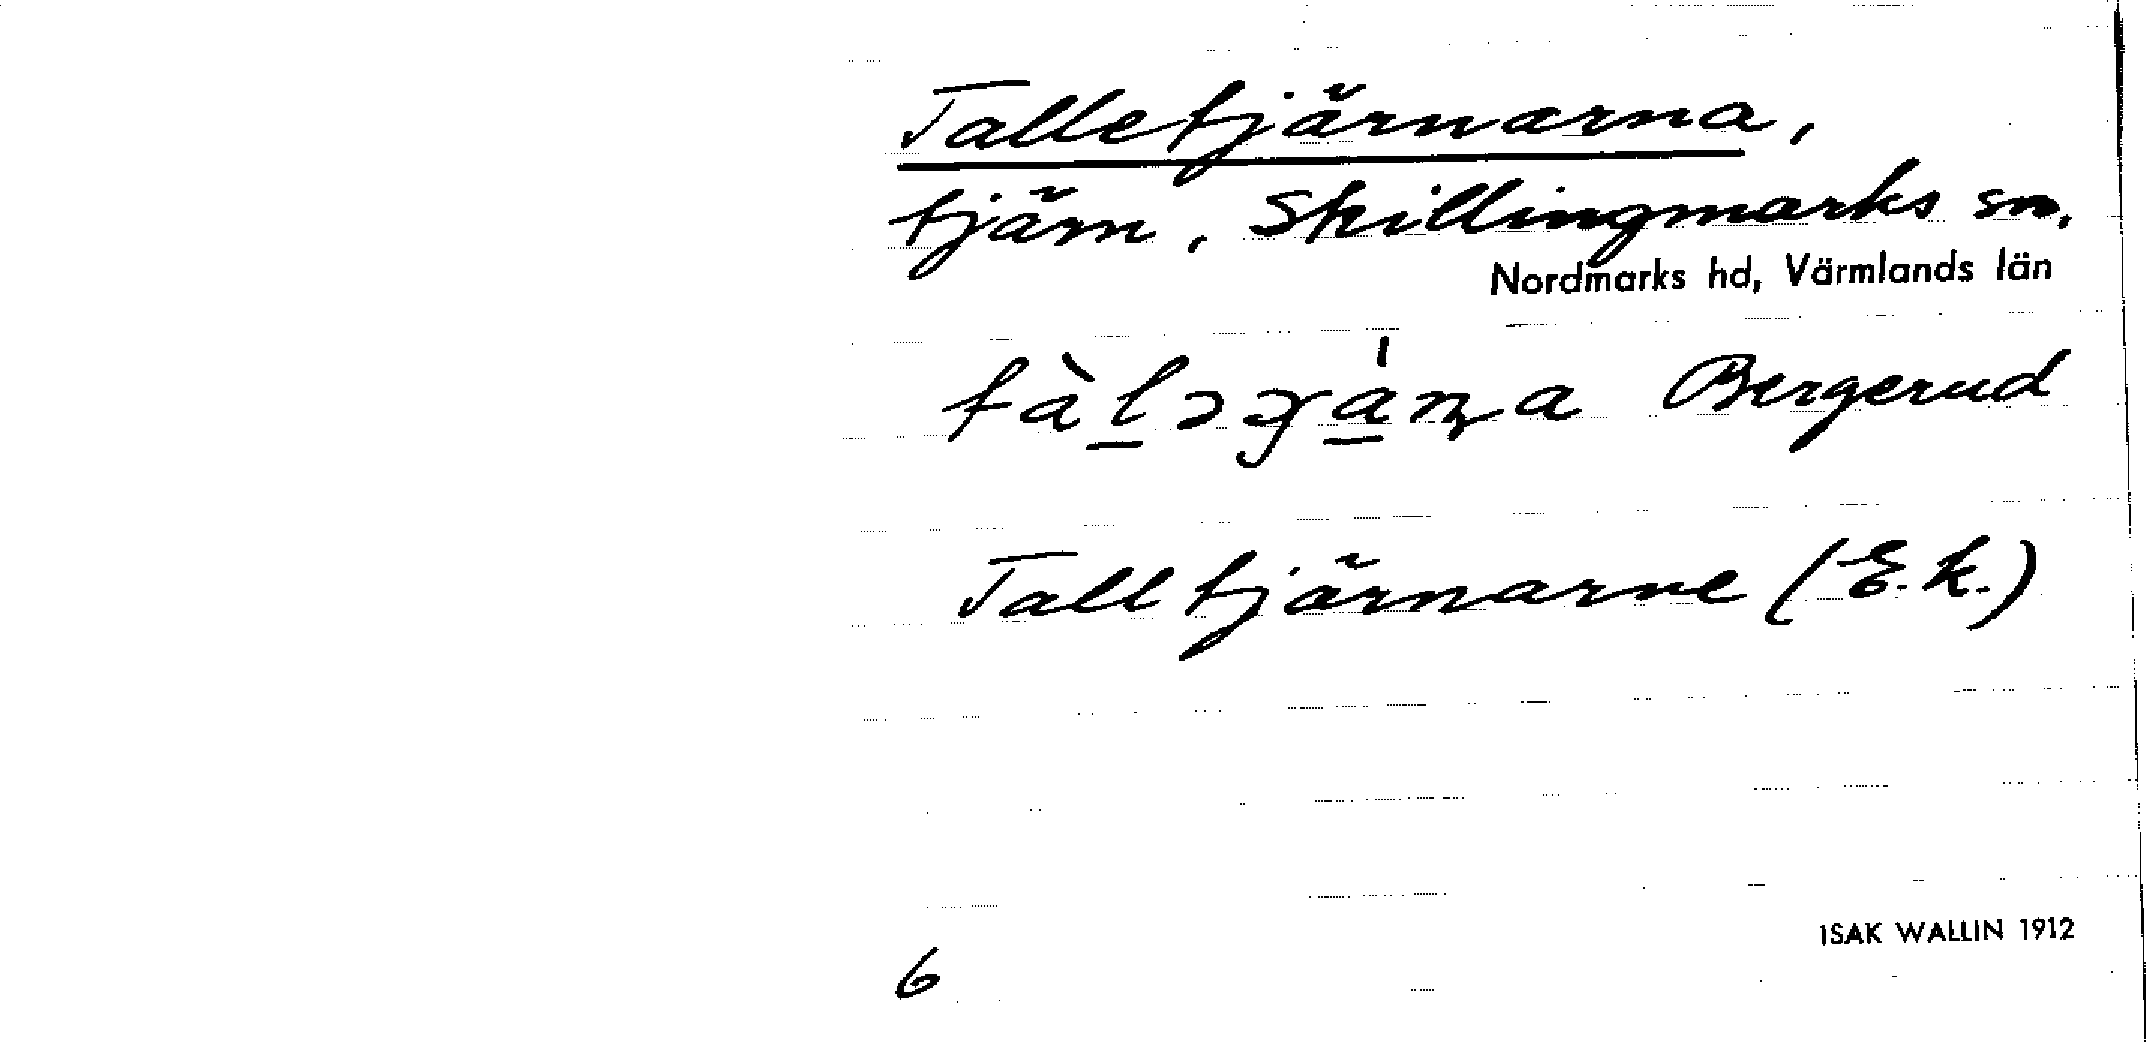 Talletjärnarna,
tjärn, Skillingmarks sn,
Nordmarks hd, Värmlands län
Bergerud
Talltjärnarne (E.k.)
ISAK WALLIN 1912
6